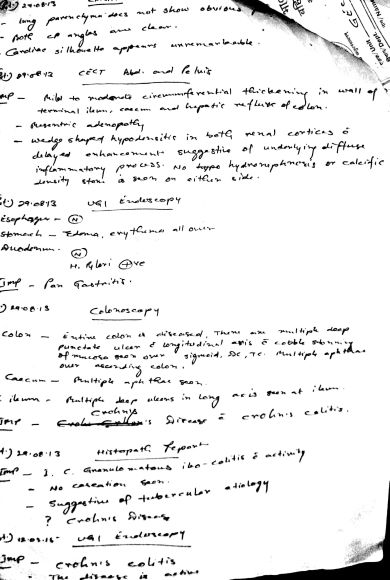 29.08.13
- lung parenchyma does not show obvious
- Both CP angles are clear.
- Cardiac silhouette appears unremarkable.
29.08.13 CECT Abd. and Pelvis
Imp - Mild to moderate circumferential thickening in wall of
terminal ileum, caecum and hepatic reflux of colon.
- Mesentric adenopathy
- Wedge shaped hypodensitic in both renal cortices c̄
delayed enhancement suggestive of underlying diffuse
inflammatory process. No hypo hydronephrosis or calcific
density stone is seen on either side.
29.08.13 UGI Endoscopy
Esophagus - (N)
Stomach - Edema, erythema all over
Duodenum - (N)
H. Pylori (+)ve
Imp - Pan Gastritis.
29.08.13 Colonoscopy
Colon - Entire colon is diseased, There are multiple deep
punctate ulcer c̄ longitudinal axis c̄ cobble stoning
of mucosa seen over sigmoid, DC, TC. Multiple aphthae
over ascending colon.
Caecum - Multiple aphthae seen.
ileum - Multiple deep ulcers in long axis seen at ileum.
Crohn's
Imp - Disease c̄ crohn's colitis.
29.08.13 Histopath Report
Imp - I. C. Granulomatous ileo-colitis c̄ activity
- No caseation seen.
- Suggestive of tubercular etiology
? Crohn's Disease
UGI Endoscopy
Imp - Crohn's colitis
The disease is active